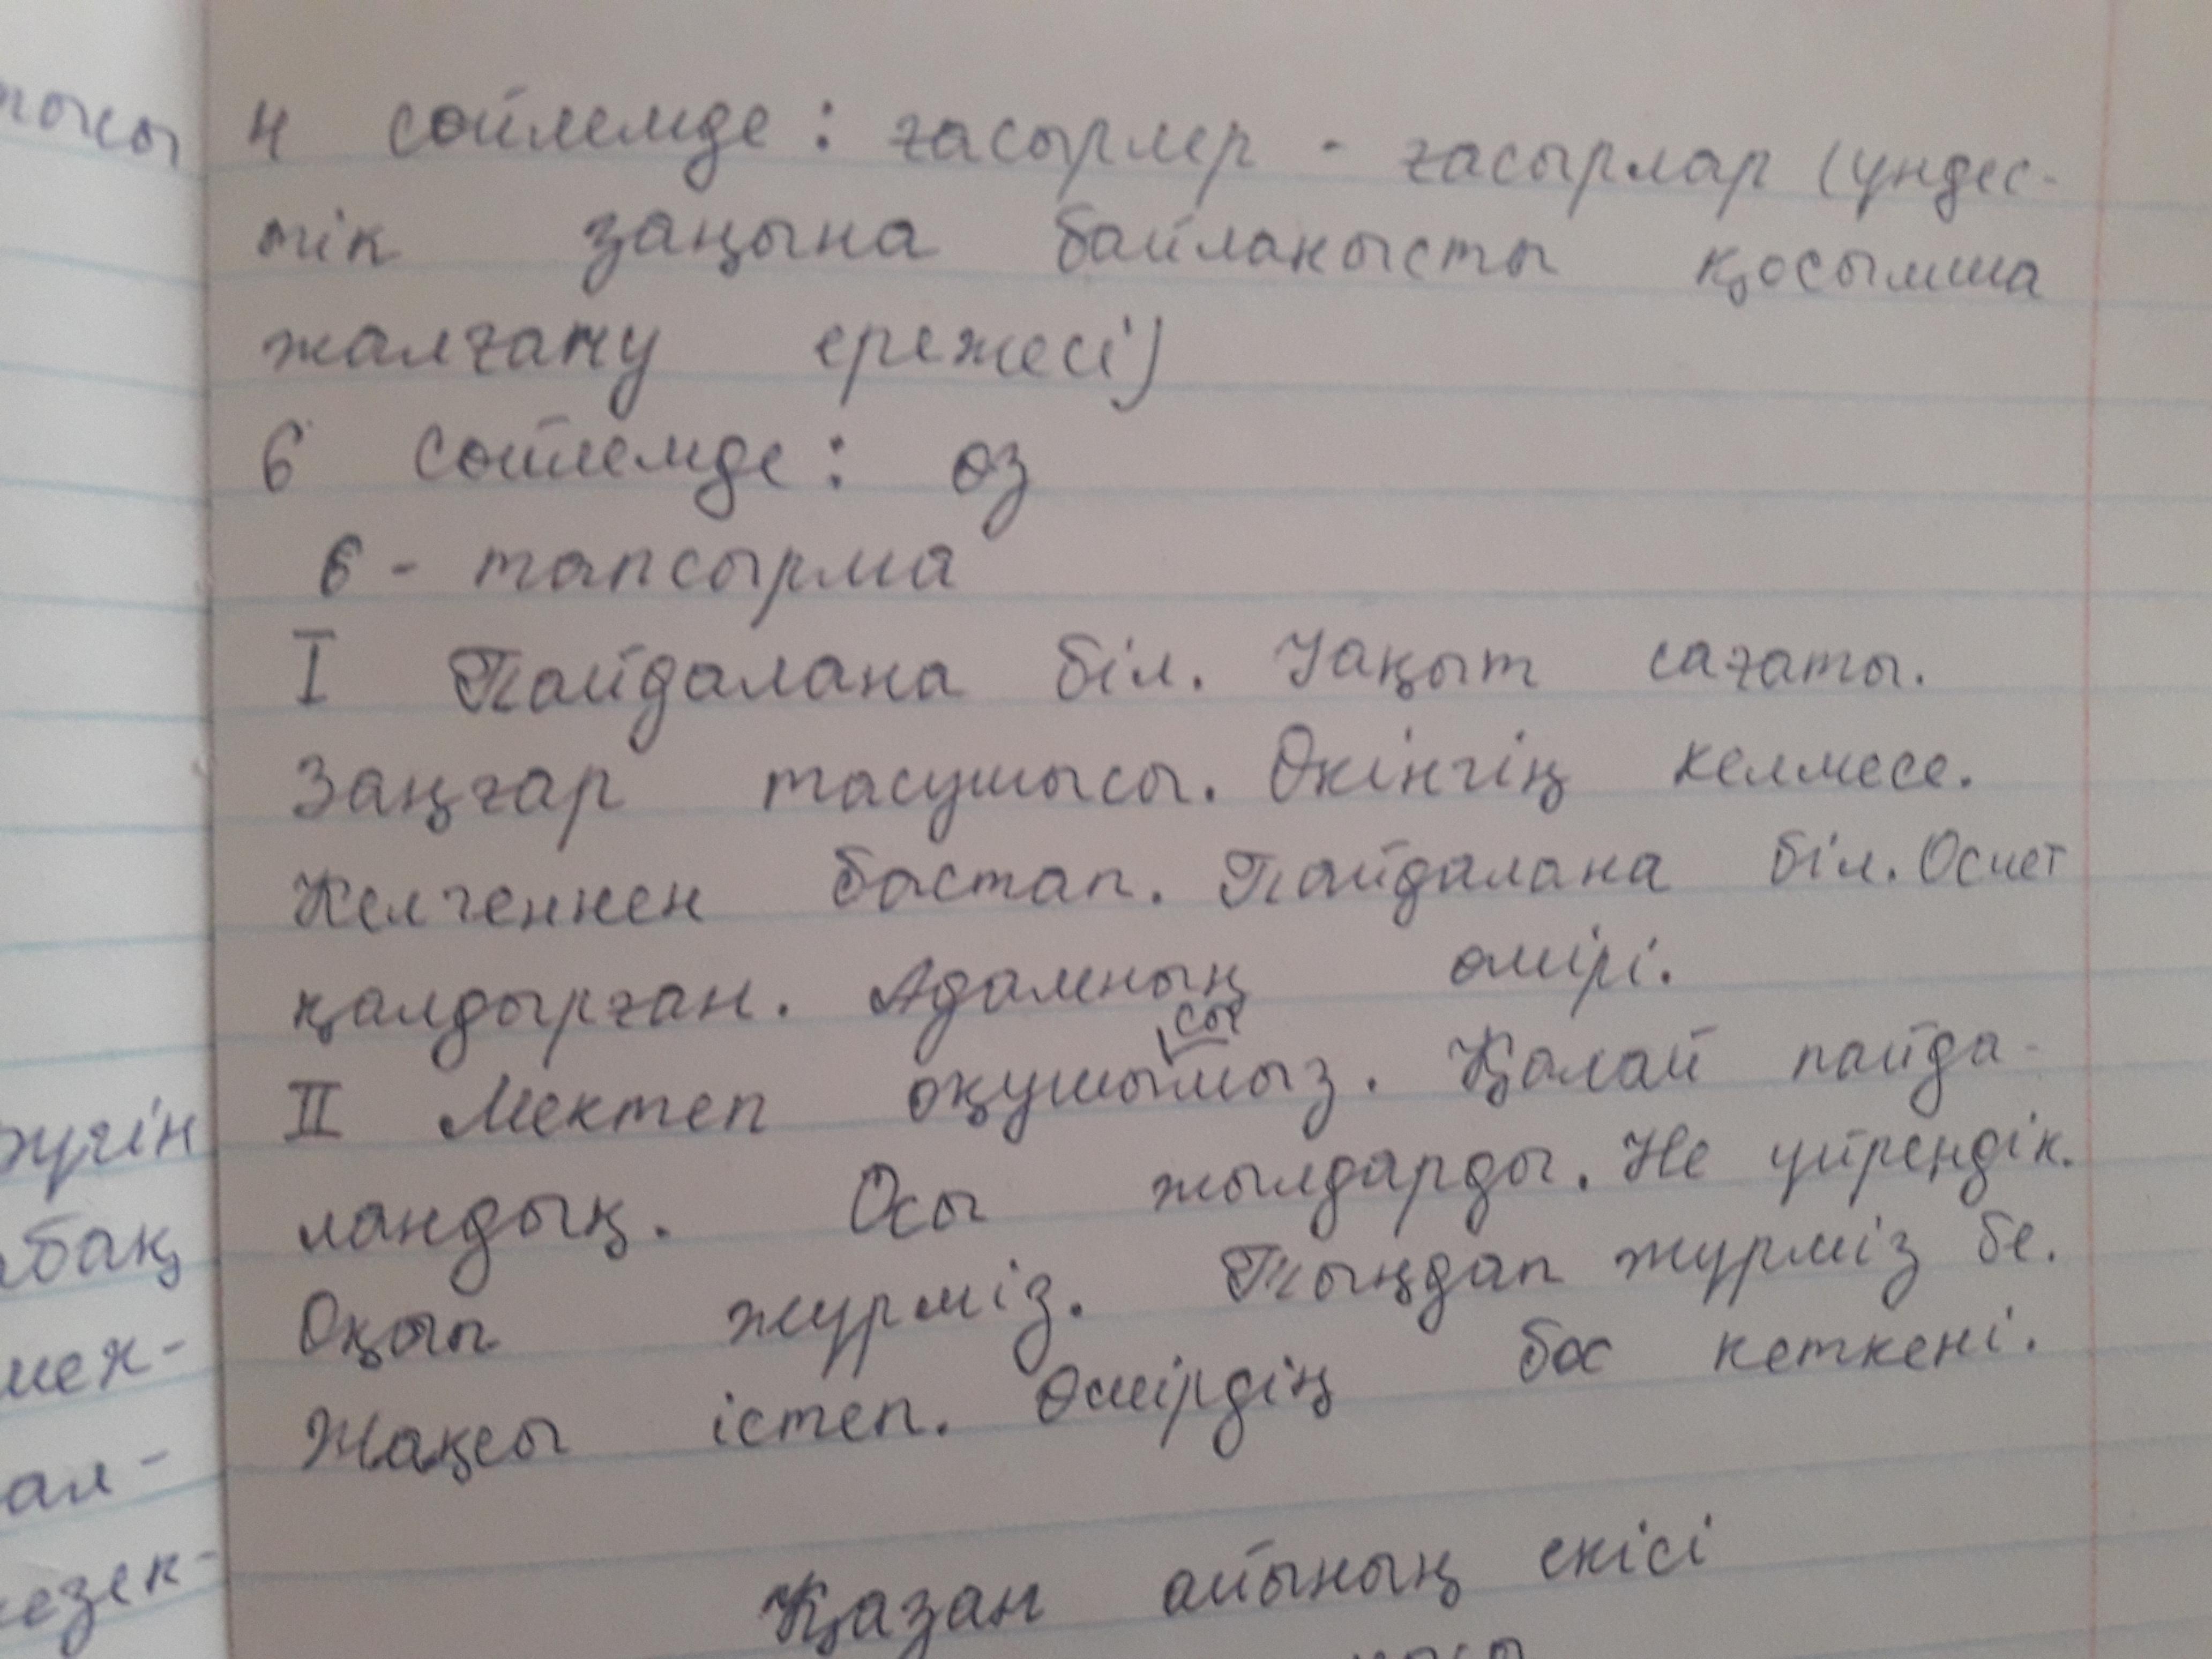 тысы
4 сөйлемде: ғасырлер - ғасырлар (үндес-
тік заңына байланысты қосымша
жалғану ережесі)
6 сөйлемде: өз
6 - тапсырма
I Пайдалана біл. Уақыт сағаты.
Заңғар тасушысы. Өкінгің келмесе.
Келгеннен бастап. Пайдалана біл. Осиет
қалдырған. Адамның өмірі.
сы
II Мектеп оқушымыз. Қалай пайда-
ландық. Осы жылдарды. Не үйрендік.
Оқып жүрміз. Тыңдап жүрміз бе.
Жақсы істеп. Өмірдің бос кеткені.
Қазан айының екісі